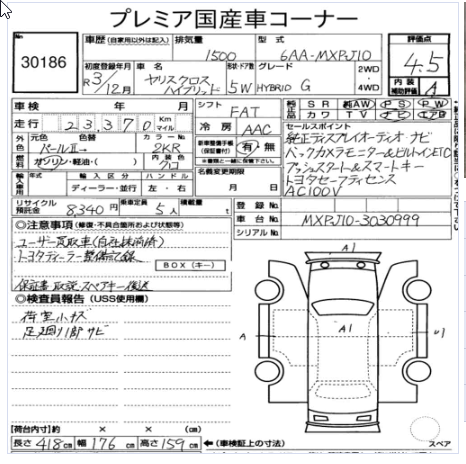 プレミア国産車コーナー
No. 30186
車歴 (自家用以外は記入) 排気量 1500 型式 6AA-MXPJ10
評価点 4.5
内装補助評価 A
初度登録年月 R3/12月
車名 ヤリスクロス ハイブリッド
形状・ドア数 5W
グレード HYBRID G
2WD
4WD
車検 年 月
シフト FAT
走行 23370 Km マイル
冷房 AAC
S R 純AW P S P W
カワ T V ナビ エアB
外色 元色 パールⅡ 色替 カラーNo. 2KR
ガソリン・軽油・( ) 内装色 クロ
新車整備手帳 (保証書付) 有・無
※書類と一緒に保管して下さい。
輸入車用 年式 輸入区分 ハンドル
ディーラー・並行 左・右
名義変更期限
月 日
セールスポイント
純正ディスプレイオーディオ ナビ
バックカメラモニター&ビルトインETC
プッシュスタート&スマートキー
トヨタセーフティセンス
AC100V
リサイクル預託金 8340 円 乗車定員 5 人 積載量 t
登録No.
車台No. MXPJ10-3030999
シリアルNo.
◎注意事項 (修復・不具合箇所および状態等)
ユーザー買取車(自社抹消済)
トヨタディーラー整備記録
BOX (キー)
保証書 取説 スペアキー後送
◎検査員報告 (USS使用欄)
荷室小キズ
足廻り1部サビ
A1
A1
A
U1
スペア
[荷台内寸] 約 × × (cm)
長さ 418 cm 幅 176 cm 高さ 159 cm ←(車検証上の寸法)